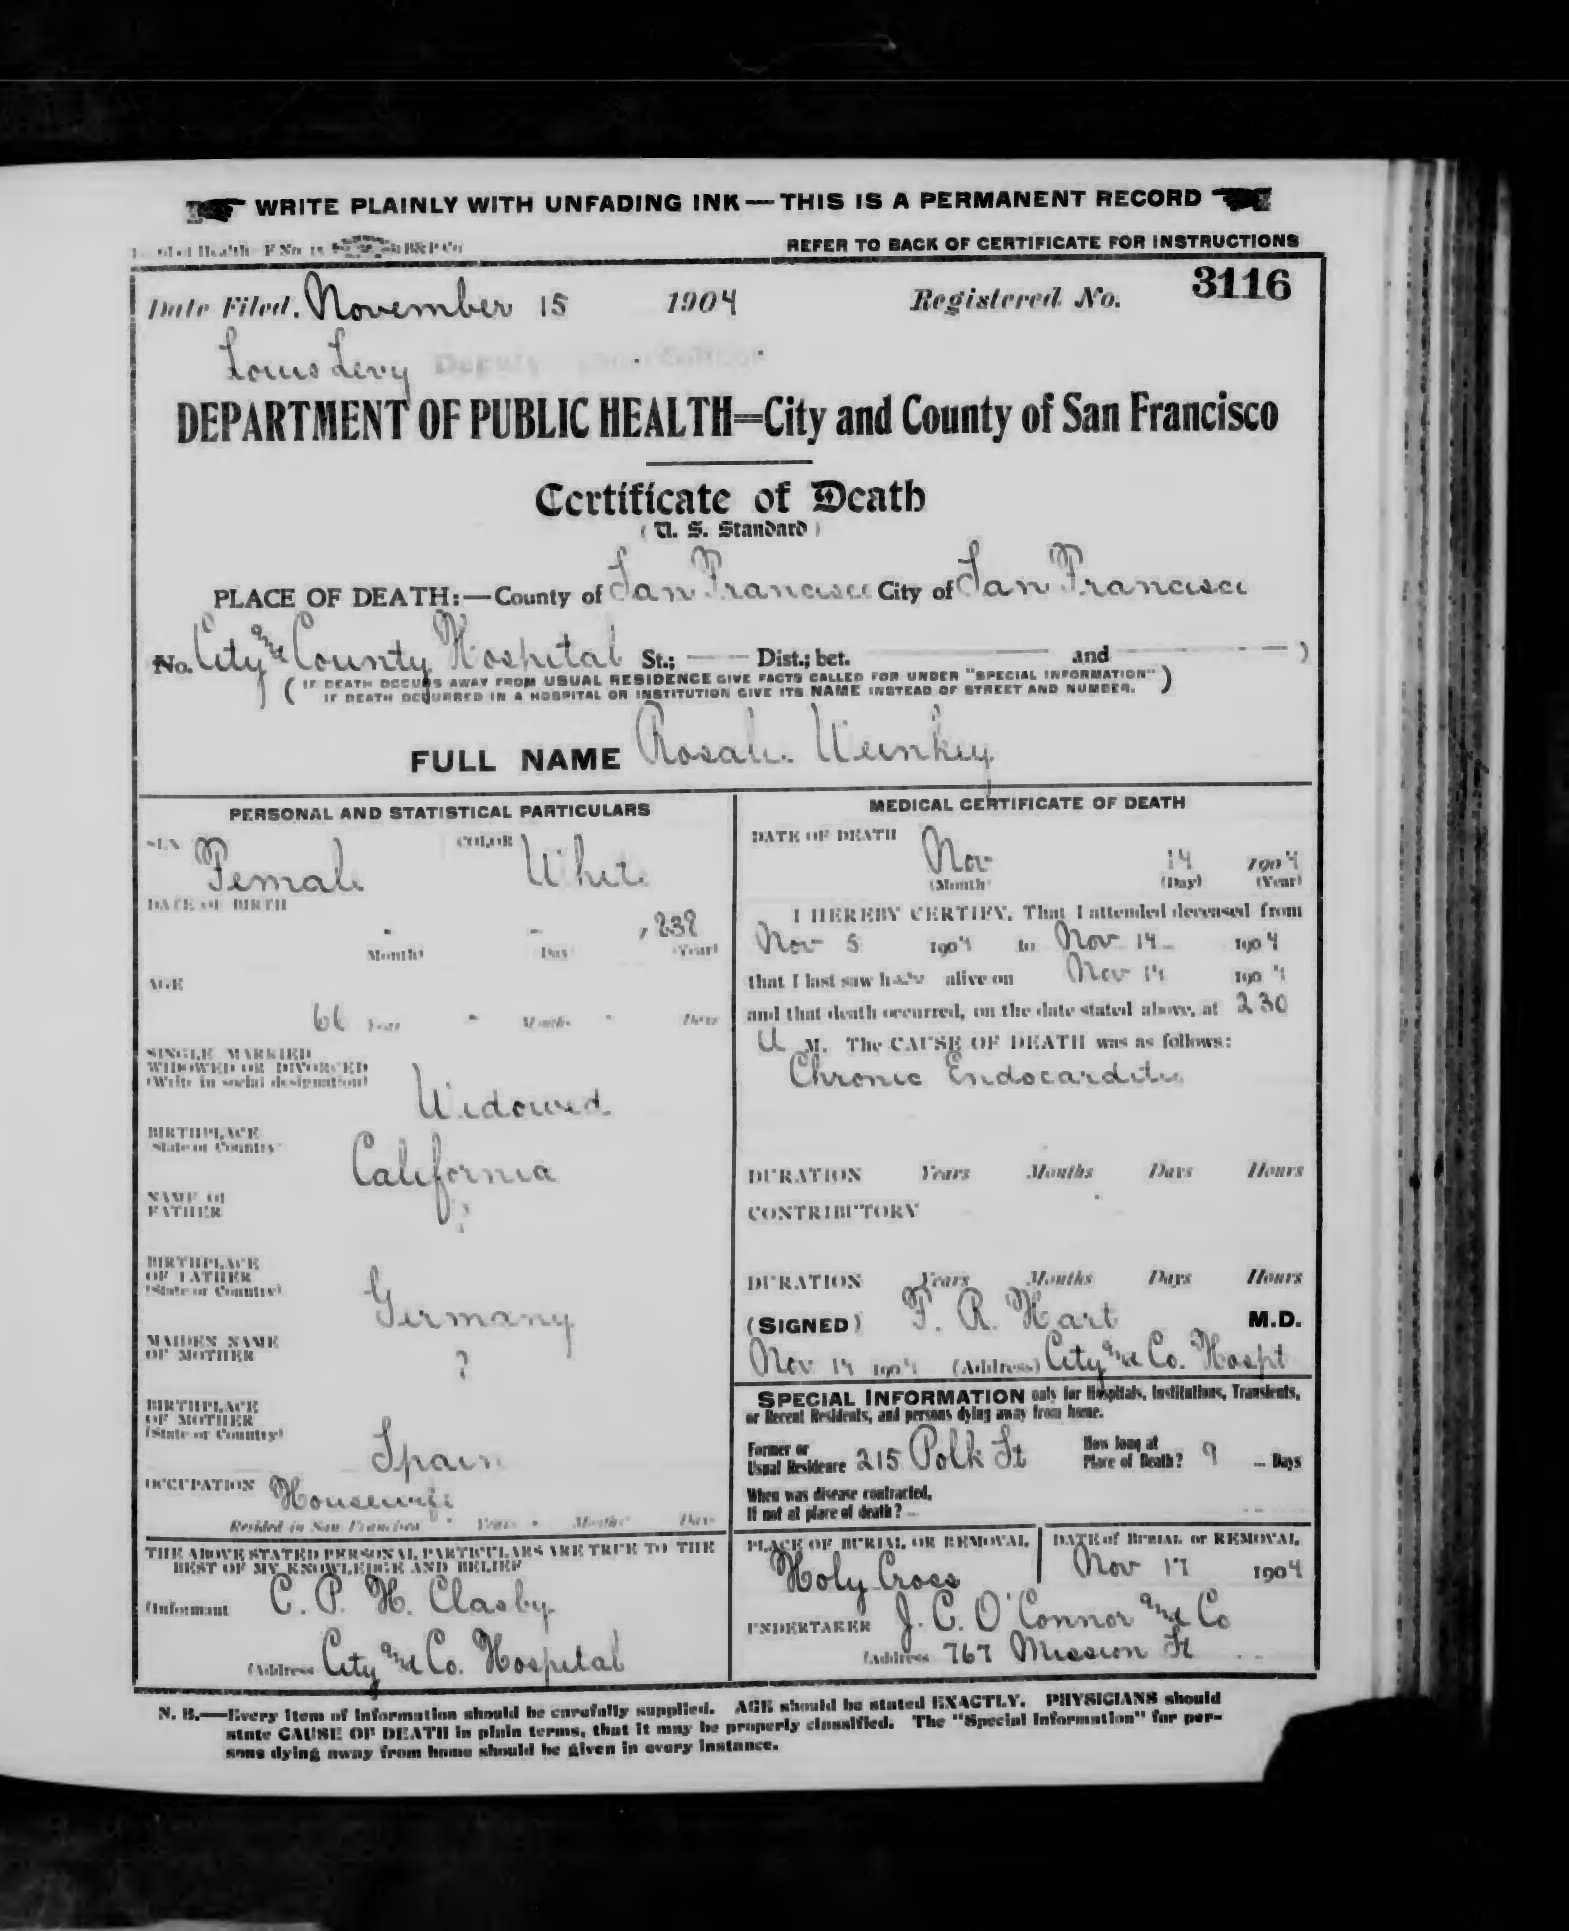 WRITE PLAINLY WITH UNFADING INK — THIS IS A PERMANENT RECORD
Health F No. 15 B&P Co
REFER TO BACK OF CERTIFICATE FOR INSTRUCTIONS
Date Filed, November 15 1904 Registered No. 3116
Louis Levy Deputy
DEPARTMENT OF PUBLIC HEALTH=City and County of San Francisco
Certificate of Death
( U. S. Standard )
PLACE OF DEATH:—County of San Francisco City of San Francisco
No. City and County Hospital St.; Dist.; bet. and )
( IF DEATH OCCURS AWAY FROM USUAL RESIDENCE GIVE FACTS CALLED FOR UNDER "SPECIAL INFORMATION" )
IF DEATH OCCURRED IN A HOSPITAL OR INSTITUTION GIVE ITS NAME INSTEAD OF STREET AND NUMBER.
FULL NAME Rosalie Weinkey
PERSONAL AND STATISTICAL PARTICULARS
SEX Female COLOR White
DATE OF BIRTH
- - 1838
(Month) (Day) (Year)
AGE
66 Years - Months - Days
SINGLE MARRIED
WIDOWED OR DIVORCED
(Write in social designation)
Widowed
BIRTHPLACE
(State or Country)
California
NAME OF
FATHER
?
BIRTHPLACE
OF FATHER
(State or Country)
Germany
MAIDEN NAME
OF MOTHER
?
BIRTHPLACE
OF MOTHER
(State or Country)
Spain
OCCUPATION Housewife
Resided in San Francisco - Years - Months Days
THE ABOVE STATED PERSONAL PARTICULARS ARE TRUE TO THE
BEST OF MY KNOWLEDGE AND BELIEF
(Informant C. P. H. Clasby
(Address City and Co. Hospital
MEDICAL CERTIFICATE OF DEATH
DATE OF DEATH
Nov 14 1904
(Month) (Day) (Year)
I HEREBY CERTIFY, That I attended deceased from
Nov 5 1904 to Nov 14 1904
that I last saw her alive on Nov 14 1904
and that death occurred, on the date stated above, at 2 30
a M. The CAUSE OF DEATH was as follows:
Chronic Endocarditis
DURATION Years Months Days Hours
CONTRIBUTORY
DURATION Years Months Days Hours
(SIGNED) F. R. Hart M.D.
Nov 14 1904 (Address) City and Co. Hospt
SPECIAL INFORMATION only for Hospitals, Institutions, Transients,
or Recent Residents, and persons dying away from home.
Former or
Usual Residence 215 Polk St
How long at
Place of Death? 9 Days
When was disease contracted,
If not at place of death?
PLACE OF BURIAL OR REMOVAL
Holy Cross
DATE of BURIAL or REMOVAL
Nov 17 1904
UNDERTAKER J. C. O'Connor and Co
(Address 767 Mission St
N. B.—Every item of information should be carefully supplied. AGE should be stated EXACTLY. PHYSICIANS should
state CAUSE OF DEATH in plain terms, that it may be properly classified. The "Special Information" for per-
sons dying away from home should be given in every instance.